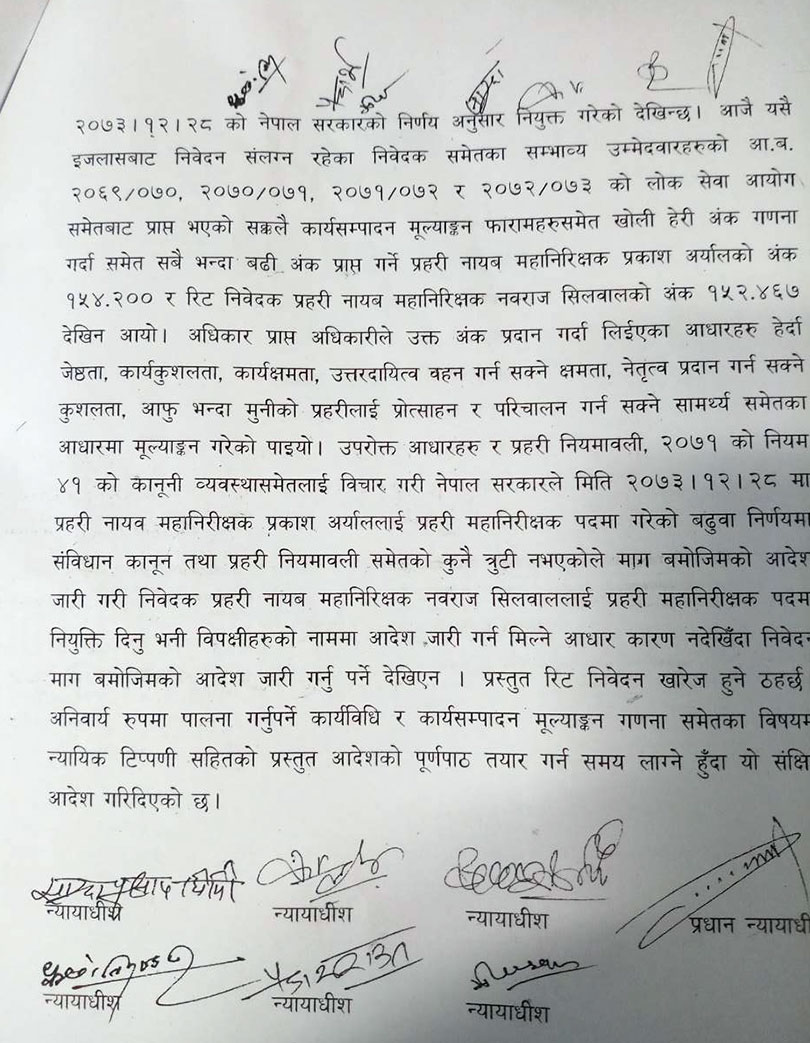 २०७३।१२।२८ को नेपाल सरकारको निर्णय अनुसार नियुक्त गरेको देखिन्छ। आजै यसै
इजलासबाट निवेदन संलग्न रहेका निवेदक समेतका सम्भाव्य उम्मेदवारहरुको आ.ब.
२०६९/०७०, २०७०/०७१, २०७१/०७२ र २०७२/०७३ को लोक सेवा आयोग
समेतबाट प्राप्त भएको सक्कलै कार्यसम्पादन मूल्याङ्कन फारामहरुसमेत खोली हेरी अंक गणना
गर्दा समेत सबै भन्दा बढी अंक प्राप्त गर्ने प्रहरी नायब महानिरिक्षक प्रकाश अर्यालको अंक
१५४.२०० र रिट निवेदक प्रहरी नायब महानिरिक्षक नवराज सिलवालको अंक १५२.४६७
देखिन आयो। अधिकार प्राप्त अधिकारीले उक्त अंक प्रदान गर्दा लिईएका आधारहरु हेर्दा
जेष्ठता, कार्यकुशलता, कार्यक्षमता, उत्तरदायित्व वहन गर्न सक्ने क्षमता, नेतृत्व प्रदान गर्न सक्ने
कुशलता, आफु भन्दा मुनीको प्रहरीलाई प्रोत्साहन र परिचालन गर्न सक्ने सामर्थ्य समेतका
आधारमा मूल्याङ्कन गरेको पाइयो। उपरोक्त आधारहरु र प्रहरी नियमावली, २०७१ को नियम
४१ को कानूनी व्यवस्थासमेतलाई विचार गरी नेपाल सरकारले मिति २०७३।१२।२८ मा
प्रहरी नायव महानिरीक्षक प्रकाश अर्याललाई प्रहरी महानिरीक्षक पदमा गरेको बढुवा निर्णयमा
संविधान कानून तथा प्रहरी नियमावली समेतको कुनै त्रुटी नभएकोले माग बमोजिमको आदेश
जारी गरी निवेदक प्रहरी नायब महानिरिक्षक नवराज सिलवाललाई प्रहरी महानिरीक्षक पदम
नियुक्ति दिनु भनी विपक्षीहरुको नाममा आदेश जारी गर्न मिल्ने आधार कारण नदेखिँदा निवेदन
माग बमोजिमको आदेश जारी गर्नु पर्ने देखिएन । प्रस्तुत रिट निवेदन खारेज हुने ठहर्छ
अनिवार्य रुपमा पालना गर्नुपर्ने कार्यविधि र कार्यसम्पादन मूल्याङ्कन गणना समेतका विषयम
न्यायिक टिप्पणी सहितको प्रस्तुत आदेशको पूर्णपाठ तयार गर्न समय लाग्ने हुँदा यो संक्षि
आदेश गरिदिएको छ।
न्यायाधीश न्यायाधीश न्यायाधीश प्रधान न्यायाधी
न्यायाधीश न्यायाधीश न्यायाधीश